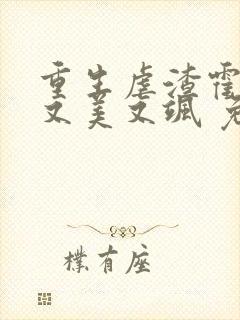 重生虐渣霍
又美又飒 免
樸有座